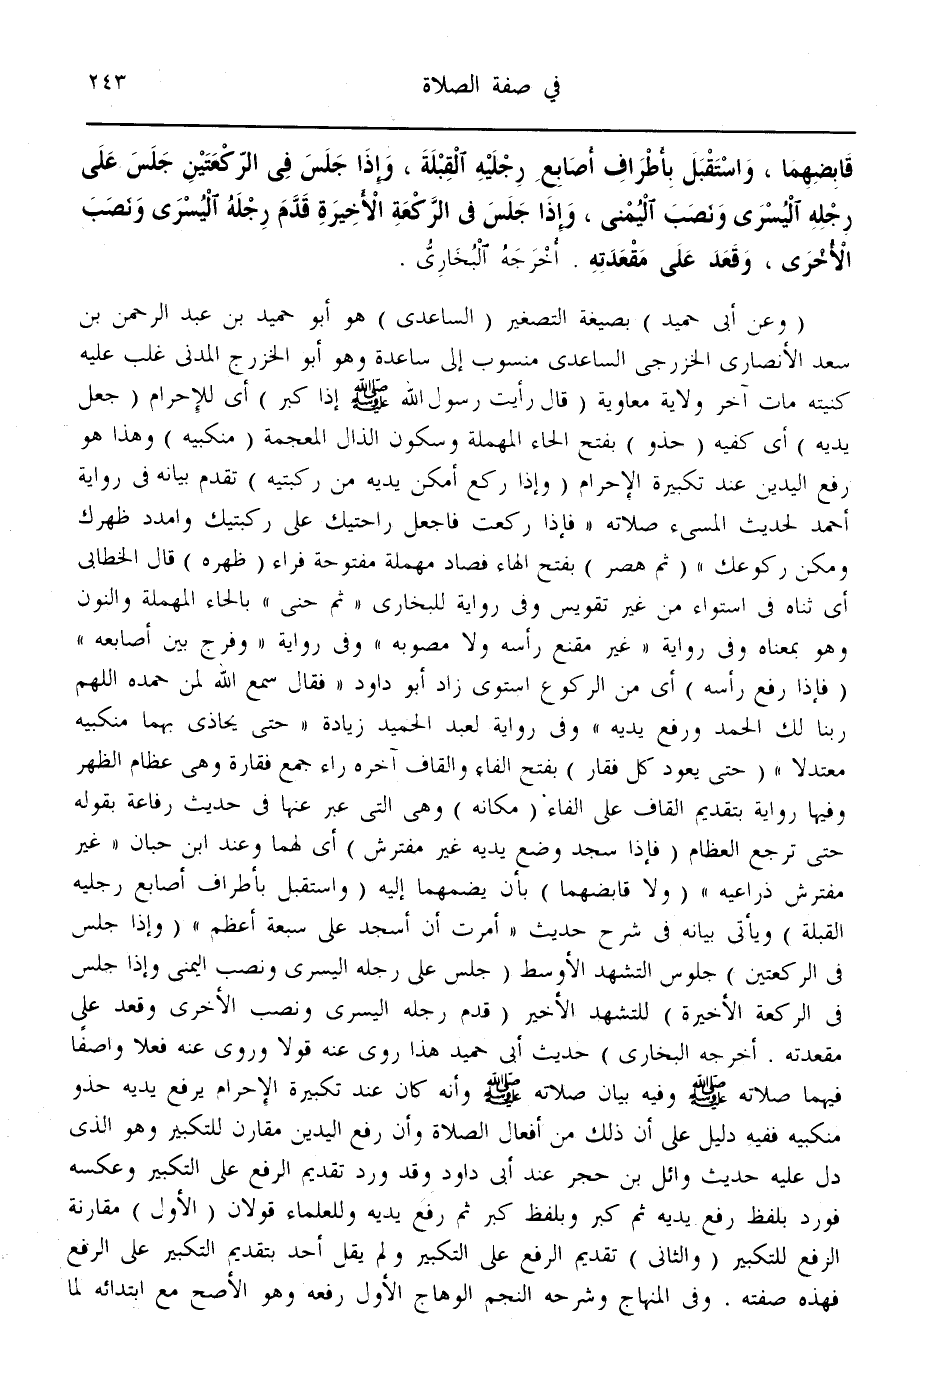 في صفة الصلاة ٢٤٣
قَابِضِهِما ، وَاسْتَقْبَلَ بِأَطْرَافِ أَصَابِعِ رِجْلَيْهِ الْقِبْلَةَ ، وَإِذَا جَلَسَ فِي الرَّكْعَتَيْنِ جَلَسَ عَلَى
رِجْلِهِ الْيُسْرَى وَنَصَبَ الْيُمْنَى ، وَإِذَا جَلَسَ فِى الرَّكْعَةِ الْأَخِيرَةِ قَدَّمَ رِجْلَهُ الْيُسْرَى وَنَصَبَ
الْأُخْرَى ، وَقَعَدَ عَلَى مَقْعَدَتِهِ . أَخْرَجَهُ الْبُخَارِىُّ .
( وعن أبى حميد ) بصيغة التصغير ( الساعدى ) هو أبو حميد بن عبد الرحمن بن
سعد الأنصارى الخزرجى الساعدى منسوب إلى ساعدة وهو أبو الخزرج المدنى غلب عليه
كنيته مات آخر ولاية معاوية ( قال رأيت رسول الله ﷺ إذا كبر ) أى للإحرام ( جعل
يديه ) أى كفيه ( حذو ) بفتح الحاء المهملة وسكون الذال المعجمة ( منكبيه ) وهذا هو
رفع اليدين عند تكبيرة الإحرام ( وإذا ركع أمكن يديه من ركبتيه ) تقدم بيانه فى رواية
أحمد لحديث المسىء صلاته « فإذا ركعت فاجعل راحتيك على ركبتيك وامدد ظهرك
ومكن ركوعك » ( ثم هصر ) بفتح الهاء فصاد مهملة مفتوحة فراء ( ظهره ) قال الخطابى
أى ثناه فى استواء من غير تقويس وفى رواية للبخارى « ثم حنى » بالحاء المهملة والنون
وهو بمعناه وفى رواية « غير مقنع رأسه ولا مصوبه » وفى رواية « وفرج بين أصابعه »
( فإذا رفع رأسه ) أى من الركوع استوى زاد أبو داود « فقال سمع الله لمن حمده اللهم
ربنا لك الحمد ورفع يديه » وفى رواية لعبد الحميد زيادة « حتى يحاذى بهما منكبيه
معتدلا » ( حتى يعود كل فقار ) بفتح الفاء والقاف آخره راء جمع فقارة وهى عظام الظهر
وفيها رواية بتقديم القاف على الفاء ( مكانه ) وهى التى عبر عنها فى حديث رفاعة بقوله
حتى ترجع العظام ( فإذا سجد وضع يديه غير مفترش ) أى لهما وعند ابن حبان « غير
مفترش ذراعيه » ( ولا قابضهما ) بأن يضمهما إليه ( واستقبل بأطراف أصابع رجليه
القبلة ) ويأتى بيانه فى شرح حديث « أمرت أن أسجد على سبعة أعظم » ( وإذا جلس
فى الركعتين ) جلوس التشهد الأوسط ( جلس على رجله اليسرى ونصب اليمنى وإذا جلس
فى الركعة الأخيرة ) للتشهد الأخير ( قدم رجله اليسرى ونصب الأخرى وقعد على
مقعدته . أخرجه البخارى ) حديث أبى حميد هذا روى عنه قولا وروى عنه فعلا واصفًا
فيهما صلاته ﷺ وفيه بيان صلاته ﷺ وأنه كان عند تكبيرة الإحرام يرفع يديه حذو
منكبيه ففيه دليل على أن ذلك من أفعال الصلاة وأن رفع اليدين مقارن للتكبير وهو الذى
دل عليه حديث وائل بن حجر عند أبى داود وقد ورد تقديم الرفع على التكبير وعكسه
فورد بلفظ رفع يديه ثم كبر وبلفظ كبر ثم رفع يديه وللعلماء قولان ( الأول ) مقارنة
الرفع للتكبير ( والثانى ) تقديم الرفع على التكبير ولم يقل أحد بتقديم التكبير على الرفع
فهذه صفته . وفى المنهاج وشرحه النجم الوهاج الأول رفعه وهو الأصح مع ابتدائه لما